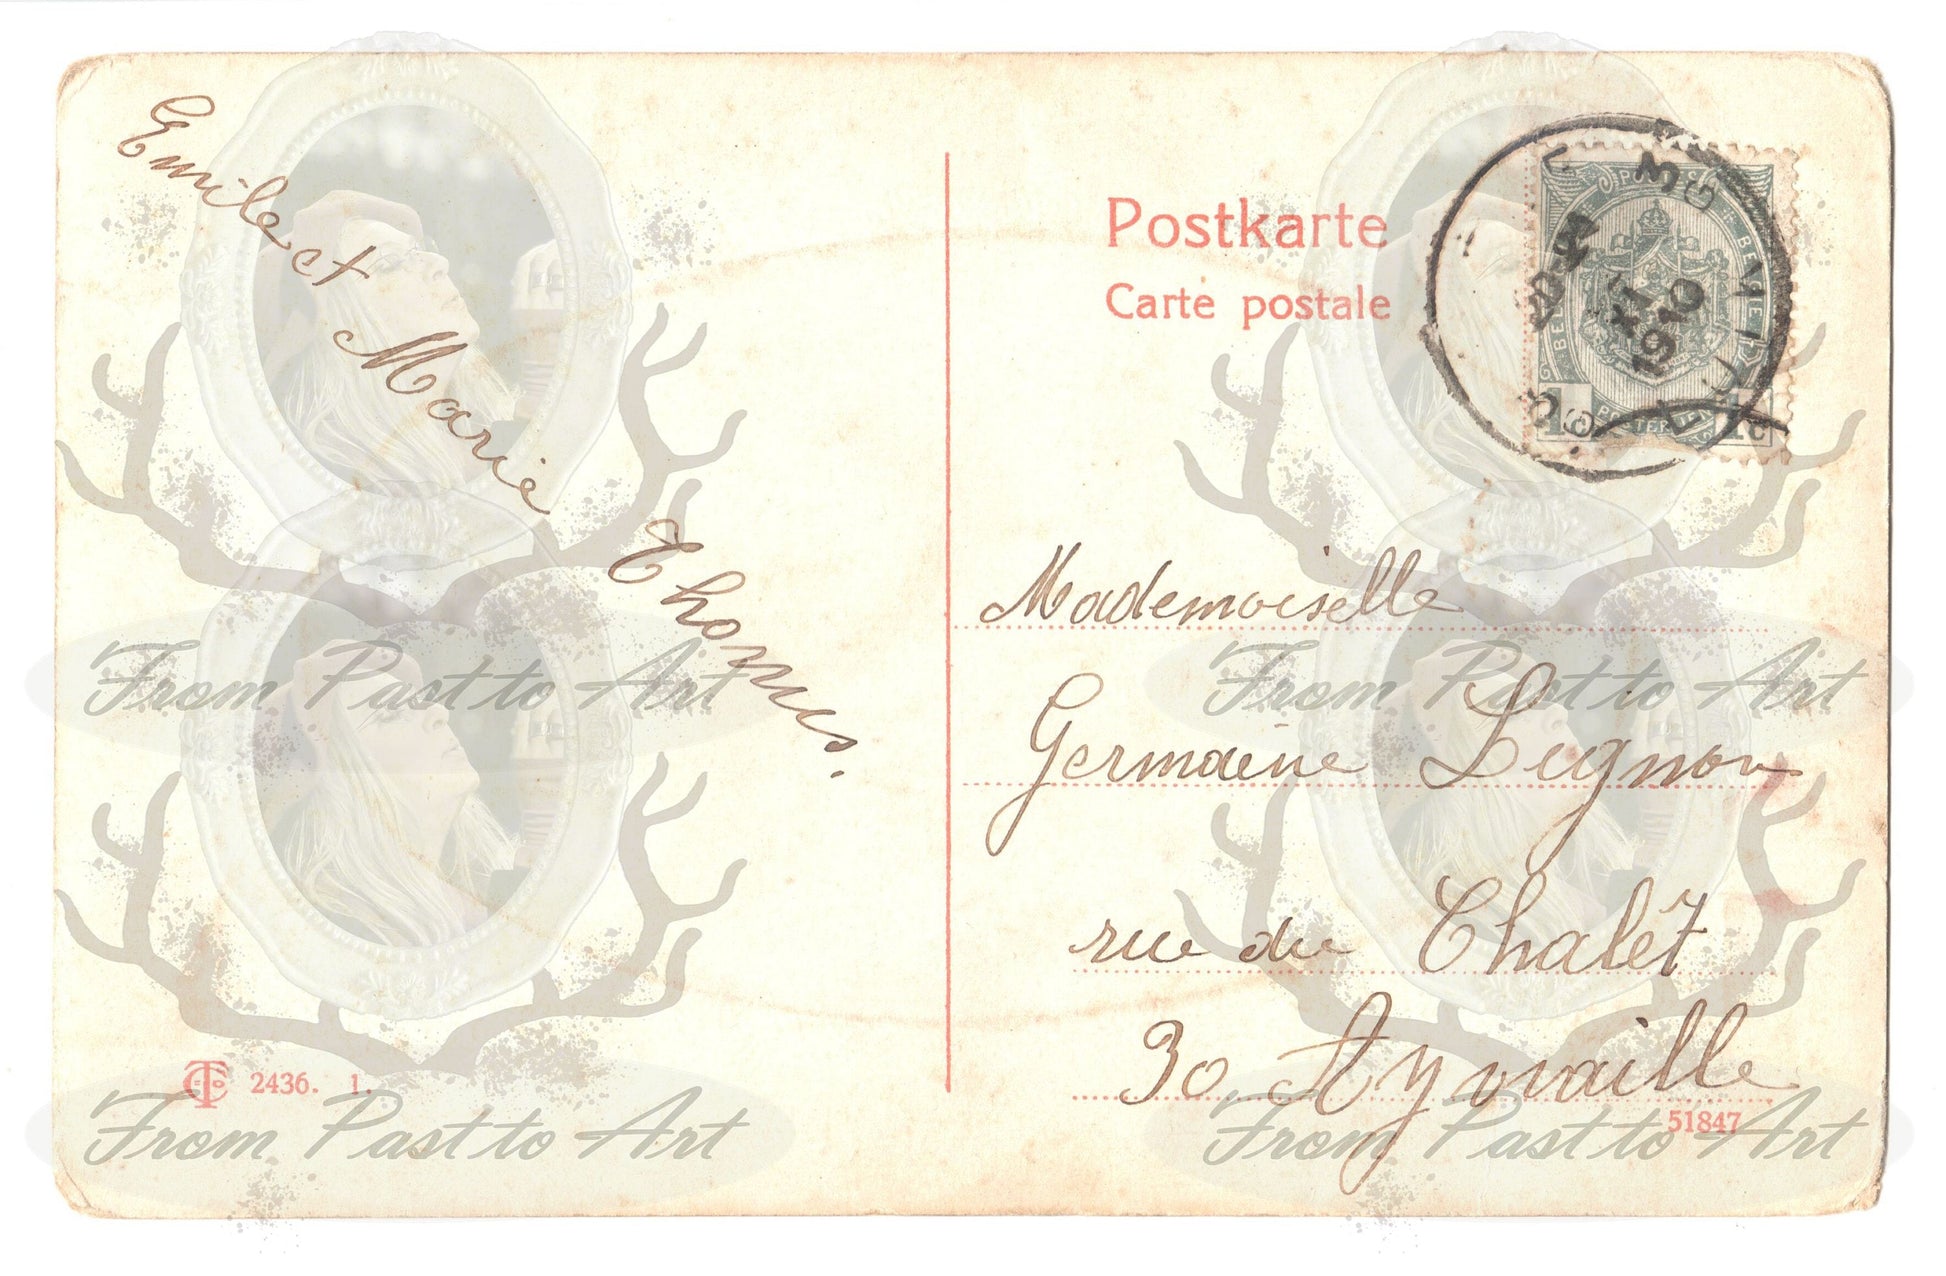 Emile et Marie Thomas.
Postkarte
Carte postale
3
XI
1910
1c 1c
Mademoiselle
Germaine Lignon
rue du Chalet
30 Aywaille
2436. 1.
51847
From Past to Art
From Past to Art
From Past to Art
From Past to Art